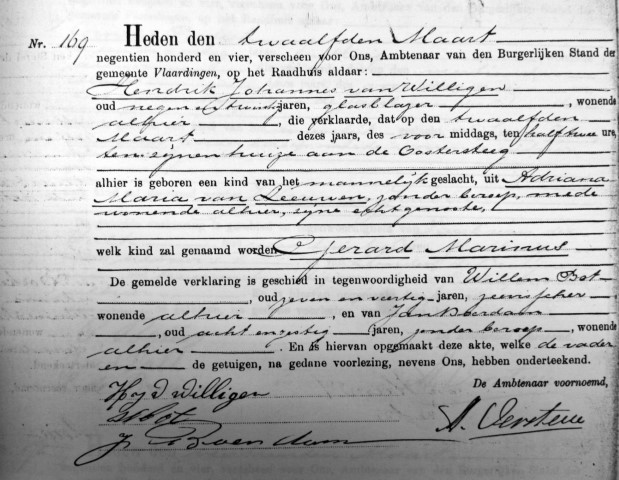 Nr. 169 Heden den twaalfden Maart
negentien honderd en vier, verscheen voor Ons, Ambtenaar van den Burgerlijken Stand der
gemeente Vlaardingen, op het Raadhuis aldaar:
Hendrik Johannes van Willigen
oud negen en twintig jaren, glasblazer, wonende
alhier, die verklaarde, dat op den twaalfden
Maart dezes jaars, des voor middags, ten half twee ure,
ten zijnen huize aan de Oostersteeg
alhier is geboren een kind van het mannelijk geslacht, uit Adriana
Maria van Leeuwen, zonder beroep, mede
wonende alhier, zijne echtgenoote,
welk kind zal genaamd worden Gerard Marinus
De gemelde verklaring is geschied in tegenwoordigheid van Willem Bot
, oud zeven en veertig jaren,
wonende alhier, en van Jan Boerdam
, oud acht en zestig jaren, zonder beroep, wonende
alhier. En is hiervan opgemaakt deze akte, welke de vader
en de getuigen, na gedane voorlezing, nevens Ons, hebben onderteekend.
De Ambtenaar voornoemd,
Willigen
Bot